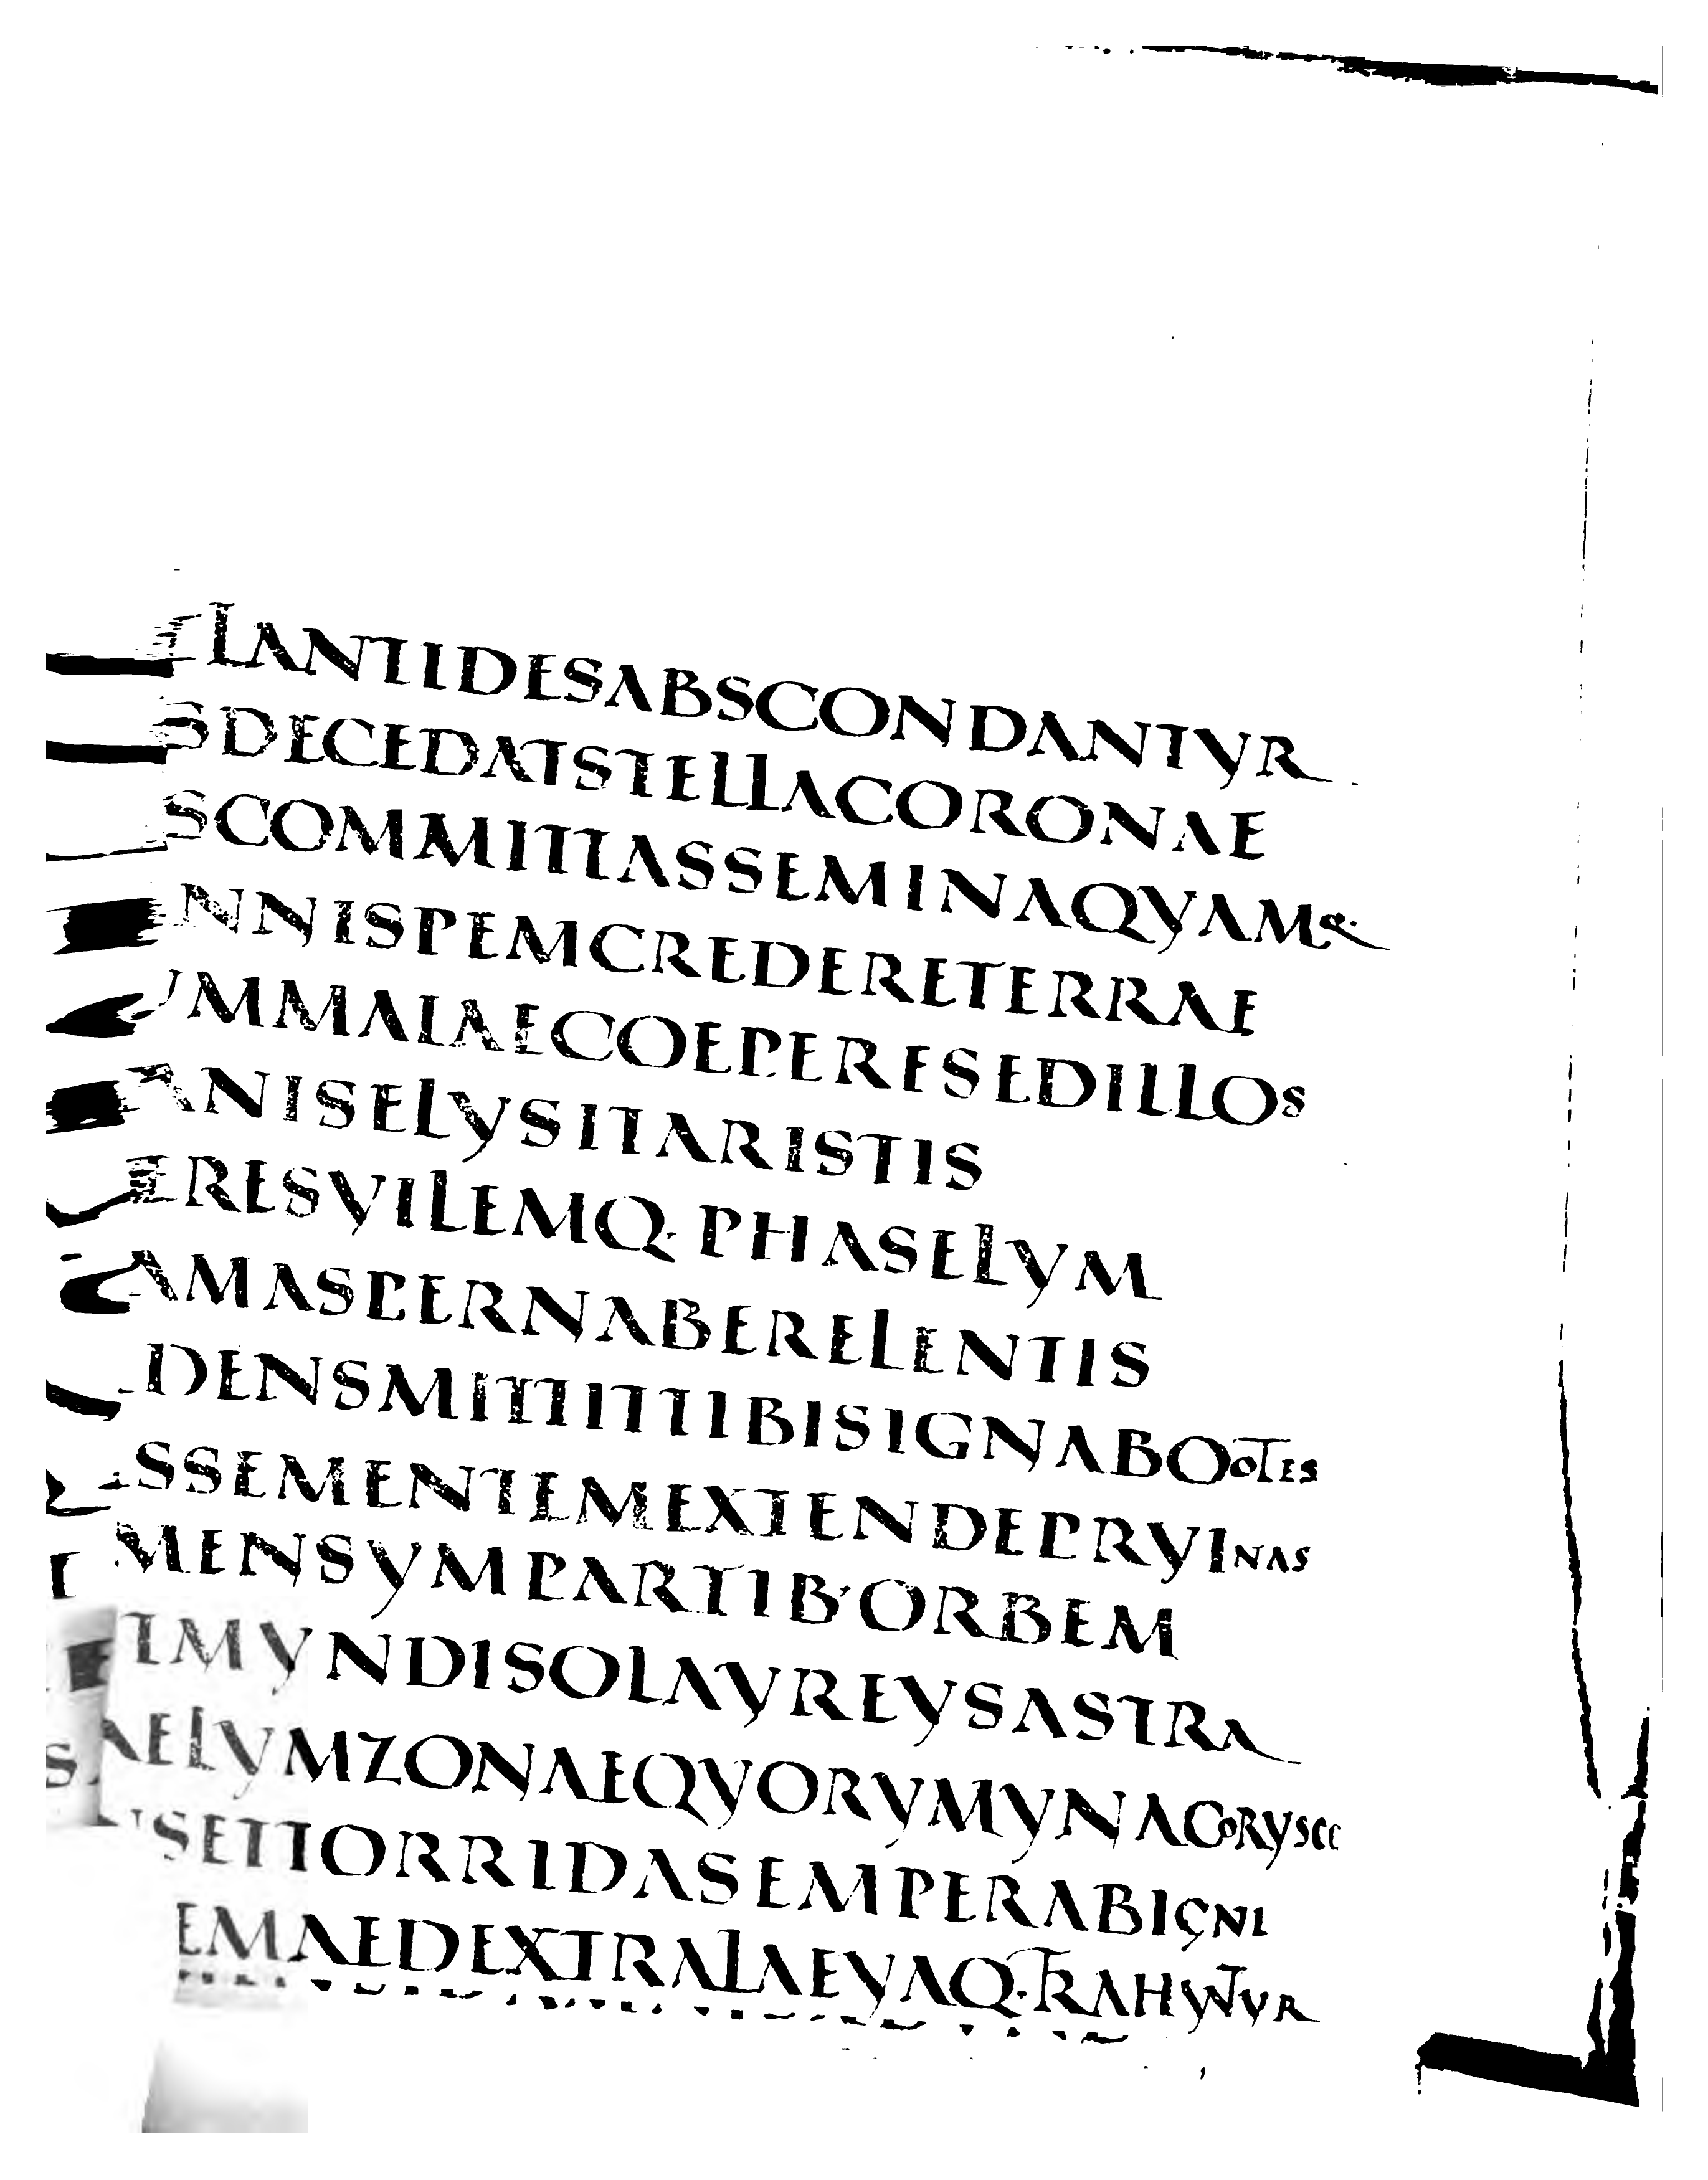 LANTIDESABSCONDANTVR
SDECEDATSTELLACORONAE
SCOMMITTASSEMINAQVAMQ·
NNISPEMCREDERETERRAE
VMMAIAECOEPERESEDILLOS
ANISELVSITARISTIS
ERESVILEMQ·PHASELVM
AMASPERNABERELENTIS
DENSMITTITTIBISIGNABOOTES
SSEMENTEMEXTENDEPRVINAS
MENSVMPARTIB·ORBEM
TMVNDISOLAVREVSASTRA
AELVMZONAEQVORVMVNACORVSCC
NSETTORRIDASEMPERABIGNI
EMAEDEXTRALAEVAQ·TRAHVNTVR